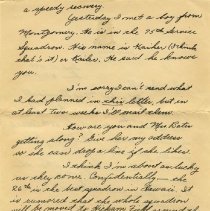 a speedy recovery
Yesterday I met a boy from
Montgomery. He is in the 75th Service
Squadron. His name is Kaiher (I think
that's it) or Kaiher. He said he knows
you.
I'm sorry I can't send what
I had planned in this letter, but in
at least two weeks I'll mail them.
How are you and Mrs Bates
getting along? Give her my address
so she can drop a line if she likes.
I think I'm about as lucky
as they come. Confidentially - the
26th is the best squadron in Hawaii. It
is rumored that the whole squadron
will be moved to Hickam Field